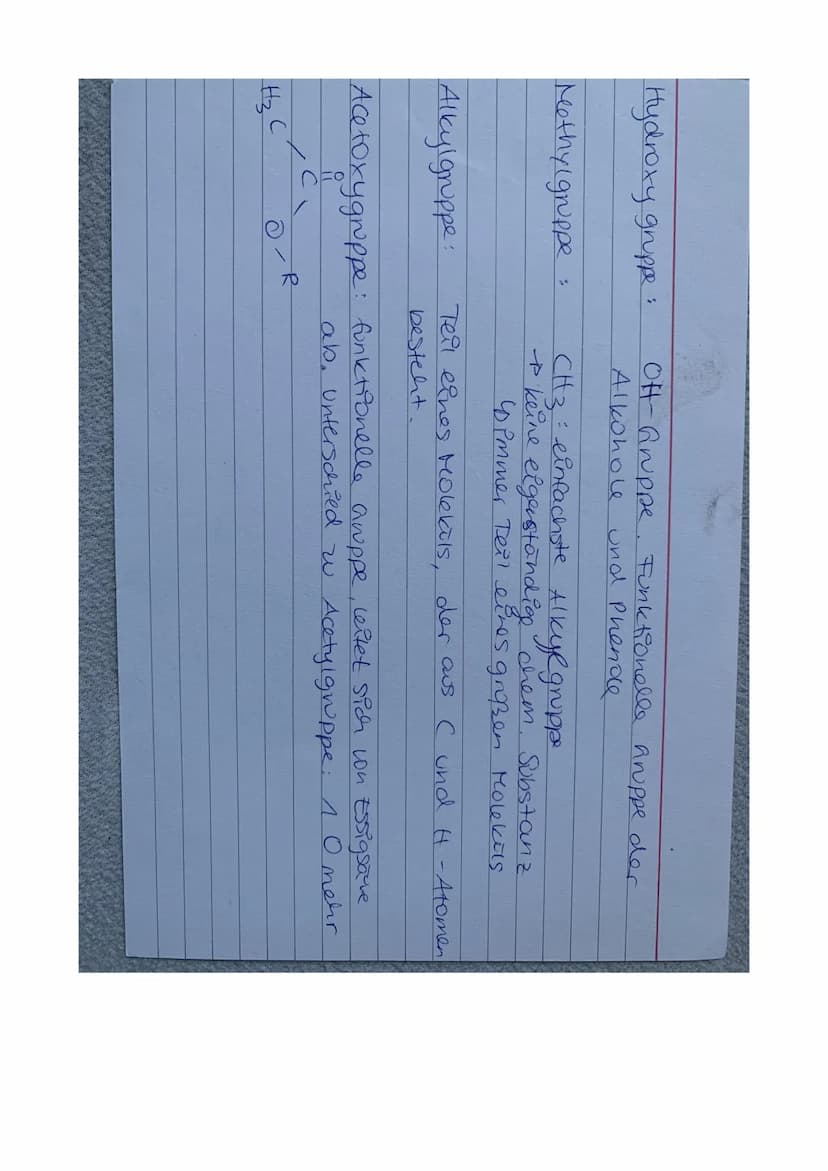 Hydroxygruppe: OH-Gruppe. Funktionelle Gruppe der
Alkohole und Phenole
Methylgruppe: CH3: einfachste Alkylgruppe
→ keine eigenständige chem. Substanz
↳ immer Teil eines großen Moleküls
Alkylgruppe: Teil eines Moleküls, der aus C und H-Atomen
besteht.
Acetoxygruppe: funktionelle Gruppe, leitet sich von Essigsäure
ab. Unterschied zu Acetylgruppe: 1 O mehr
O
H3C / C \ O / R